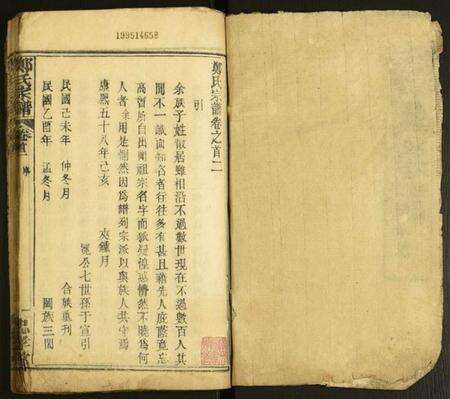 199514658
鄭氏宗譜卷之首二
引
余族子姓散居雖相沿不過數世現在不過數百人其
間不一識面知名者往往多有甚且賴先人庇蔭竟忘
高曾所自出問祖宗名字而猶疑惶惑懵然不曉為何
人者余用是惻然因為譜列宗派以與族人共守焉
康熙五十八年己亥 夾鍾月
七世孫于宣引
民國己未年 仲冬月 合族重刊
民國乙酉年 孟冬月 闔族三閱
鄭氏宗譜 卷首